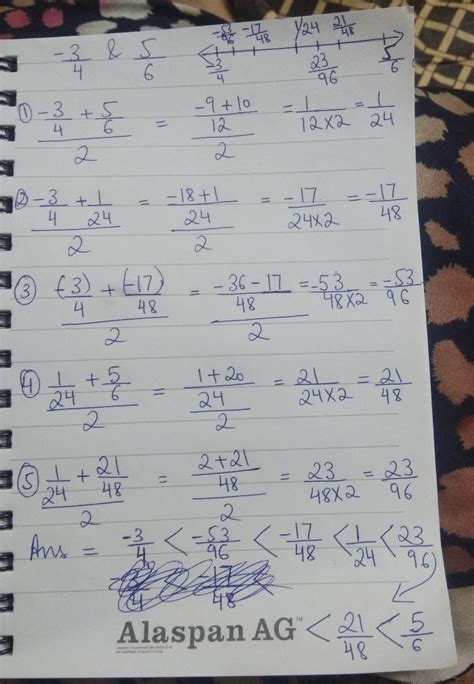 -3/4 & 5/6
-53/96 -17/48 1/24 21/48
-3/4 23/96 5/6
① (-3/4 + 5/6)/2 = ((-9+10)/12)/2 = 1/(12×2) = 1/24
② (-3/4 + 1/24)/2 = ((-18+1)/24)/2 = -17/(24×2) = -17/48
③ ((-3)/4 + (-17)/48)/2 = ((-36-17)/48)/2 = -53/(48×2) = -53/96
④ (1/24 + 5/6)/2 = ((1+20)/24)/2 = 21/(24×2) = 21/48
⑤ (1/24 + 21/48)/2 = ((2+21)/48)/2 = 23/(48×2) = 23/96
Ans = -3/4 < -53/96 < -17/48 < 1/24 < 23/96
-3/4 -17/48
< 21/48 < 5/6
Alaspan AG™